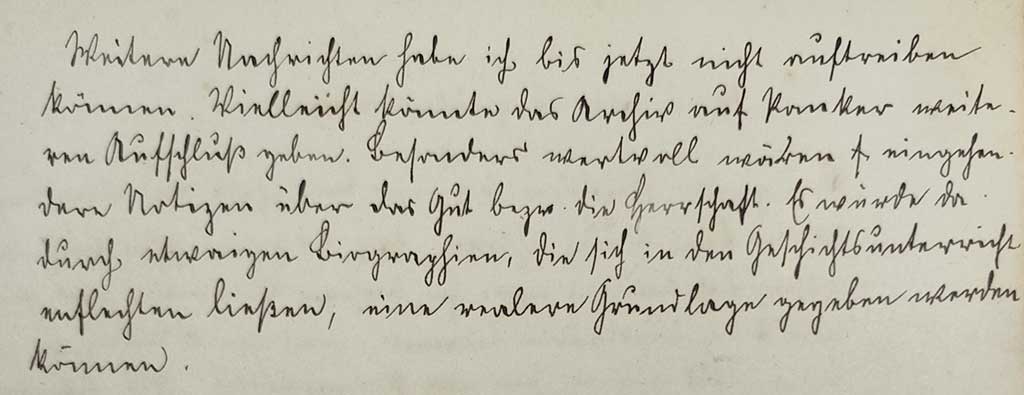 Weitere Nachrichten habe ich bis jetzt nicht auftreiben
können. Vielleicht könnte das Archiv auf Panker weite-
ren Aufschluß geben. Besonders wertvoll wären eingehen-
dere Notizen über das Gut bezw. die Herrschaft. Es würde da
durch etwaigen Biographien, die sich in den Geschichtsunterricht
einflechten ließen, eine realere Grundlage gegeben werden
können.